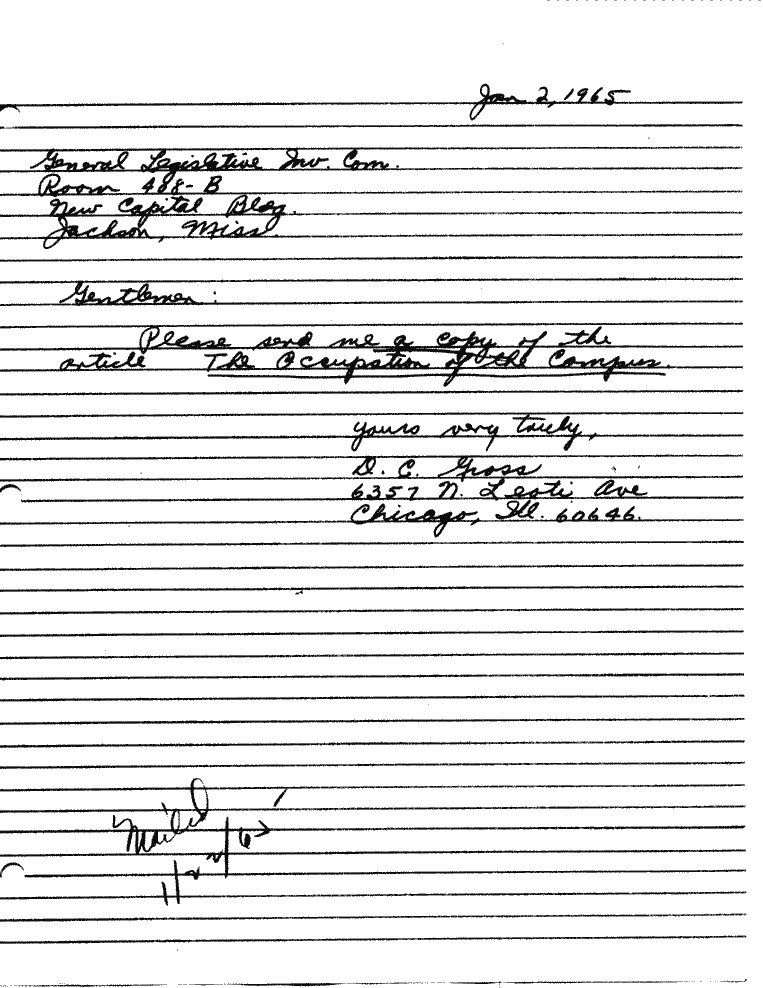 Jan 2, 1965
General Legislative Inv. Com.
Room 488-B
New Capital Bldg.
Jackson, Miss.
Gentlemen:
Please send me a copy of the
article The Occupation of the Campus.
Yours very truly,
D. C. Gross
6357 N. Leoti Ave
Chicago, Ill. 60646.
Mailed
1/22/65